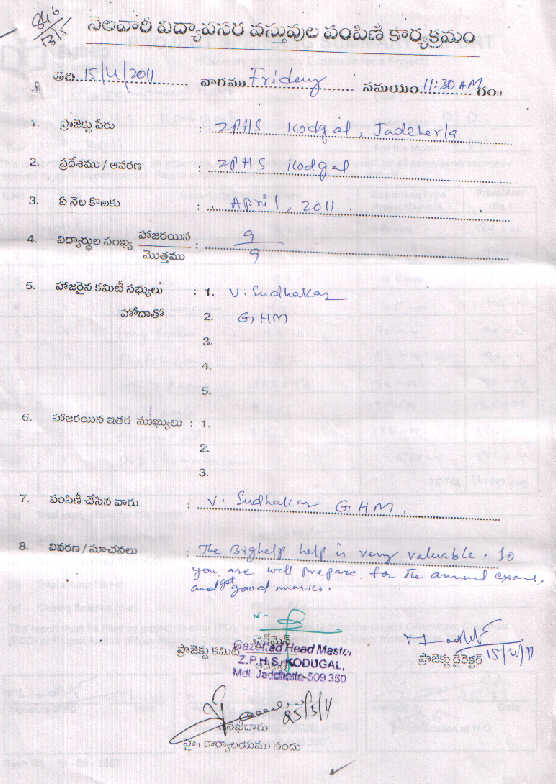 నెలవారీ విద్యాపనర వస్తువుల పంపిణీ కార్యక్రమం
తేది 15/4/2011 వారము Friday సమయం 11:30 AM గం॥
1. ప్రాజెక్టు పేరు : ZPHS Kodgal, Jadcherla
2. ప్రదేశము / ఆవరణ : ZPHS Kodgal
3. ఏ నెల కొఱకు : April, 2011
4. విద్యార్థుల సంఖ్య హాజరయిన : 9
మొత్తము 9
5. హాజరైన కమిటీ సభ్యులు : 1. V. Sudhakar
హోదాతో 2. G HM
3.
4.
5.
6. హాజరయిన ఇతర ముఖ్యులు : 1.
2.
3.
7. పంపిణీ చేసిన వారు : V. Sudhakar GHM.
8. వివరణ / సూచనలు : The Bighelp help is very valuable. So
you are well prepare for the annual exams,
and get good marks.
ప్రాజెక్టు కమిటీ Gazetted Head Master
Z.P.H.S. KODUGAL,
Mdl. Jadcherla-509 350
ప్రాజెక్టు డైరెక్టర్ 15/4/11
25/5/11
కార్యాలయము నందు